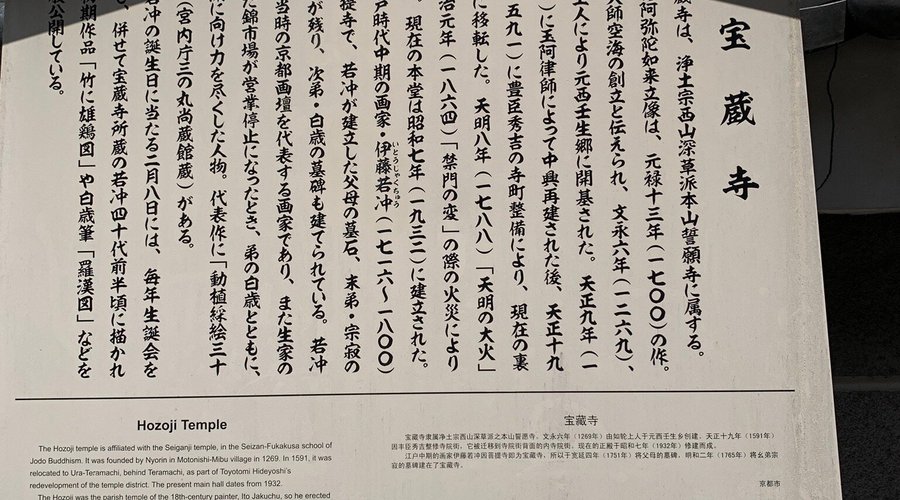 宝蔵寺
蔵寺は、浄土宗西山深草派本山誓願寺に属する。
阿弥陀如来立像は、元禄十三年(一七〇〇)の作。
大師空海の創立と伝えられ、文永六年(一二六九)、
上人により元西壬生郷に開基された。天正九年(一
)に玉阿律師によって中興再建された後、天正十九
五九一)に豊臣秀吉の寺町整備により、現在の裏
に移転した。天明八年(一七八八)「天明の大火」
治元年(一八六四)「禁門の変」の際の火災により
。現在の本堂は昭和七年(一九三二)に建立された。
戸時代中期の画家・伊藤若冲(一七一六〜一八〇〇)
いとうじゃくちゅう
提寺で、若冲が建立した父母の墓石、末弟・宗寂の
が残り、次弟・白歳の墓碑も建てられている。若冲
当時の京都画壇を代表する画家であり、また生家の
た錦市場が営業停止になったとき、弟の白歳とともに、
に向け力を尽くした人物。代表作に「動植綵絵三十
(宮内庁三の丸尚蔵館蔵)がある。
若冲の誕生日に当たる二月八日には、毎年生誕会を
、併せて宝蔵寺所蔵の若冲四十代前半頃に描かれ
期作品「竹に雄鶏図」や白歳筆「羅漢図」などを
公開している。
Hozoji Temple
The Hozoji temple is affiliated with the Seiganji temple, in the Seizan-Fukakusa school of
Jodo Buddhism. It was founded by Nyorin in Motonishi-Mibu village in 1269. In 1591, it was
relocated to Ura-Teramachi, behind Teramachi, as part of Toyotomi Hideyoshi's
redevelopment of the temple district. The present main hall dates from 1932.
The Hozoji was the parish temple of the 18th-century painter, Ito Jakuchu, so he erected
宝藏寺
宝藏寺隶属净土宗西山深草派之本山誓愿寺。文永六年(1269年)由如轮上人于元西壬生乡创建。天正十九年(1591年)
因丰臣秀吉整修寺院街，它被迁移到寺院街背面的内寺院街。现在的正殿于昭和七年(1932年)修建而成。
江户中期的画家伊藤若冲因菩提寺即为宝藏寺、所以于宽延四年(1751年)将父母的墓碑、明和二年(1765年)将幺弟宗
寂的墓碑建在了宝藏寺。
京都市